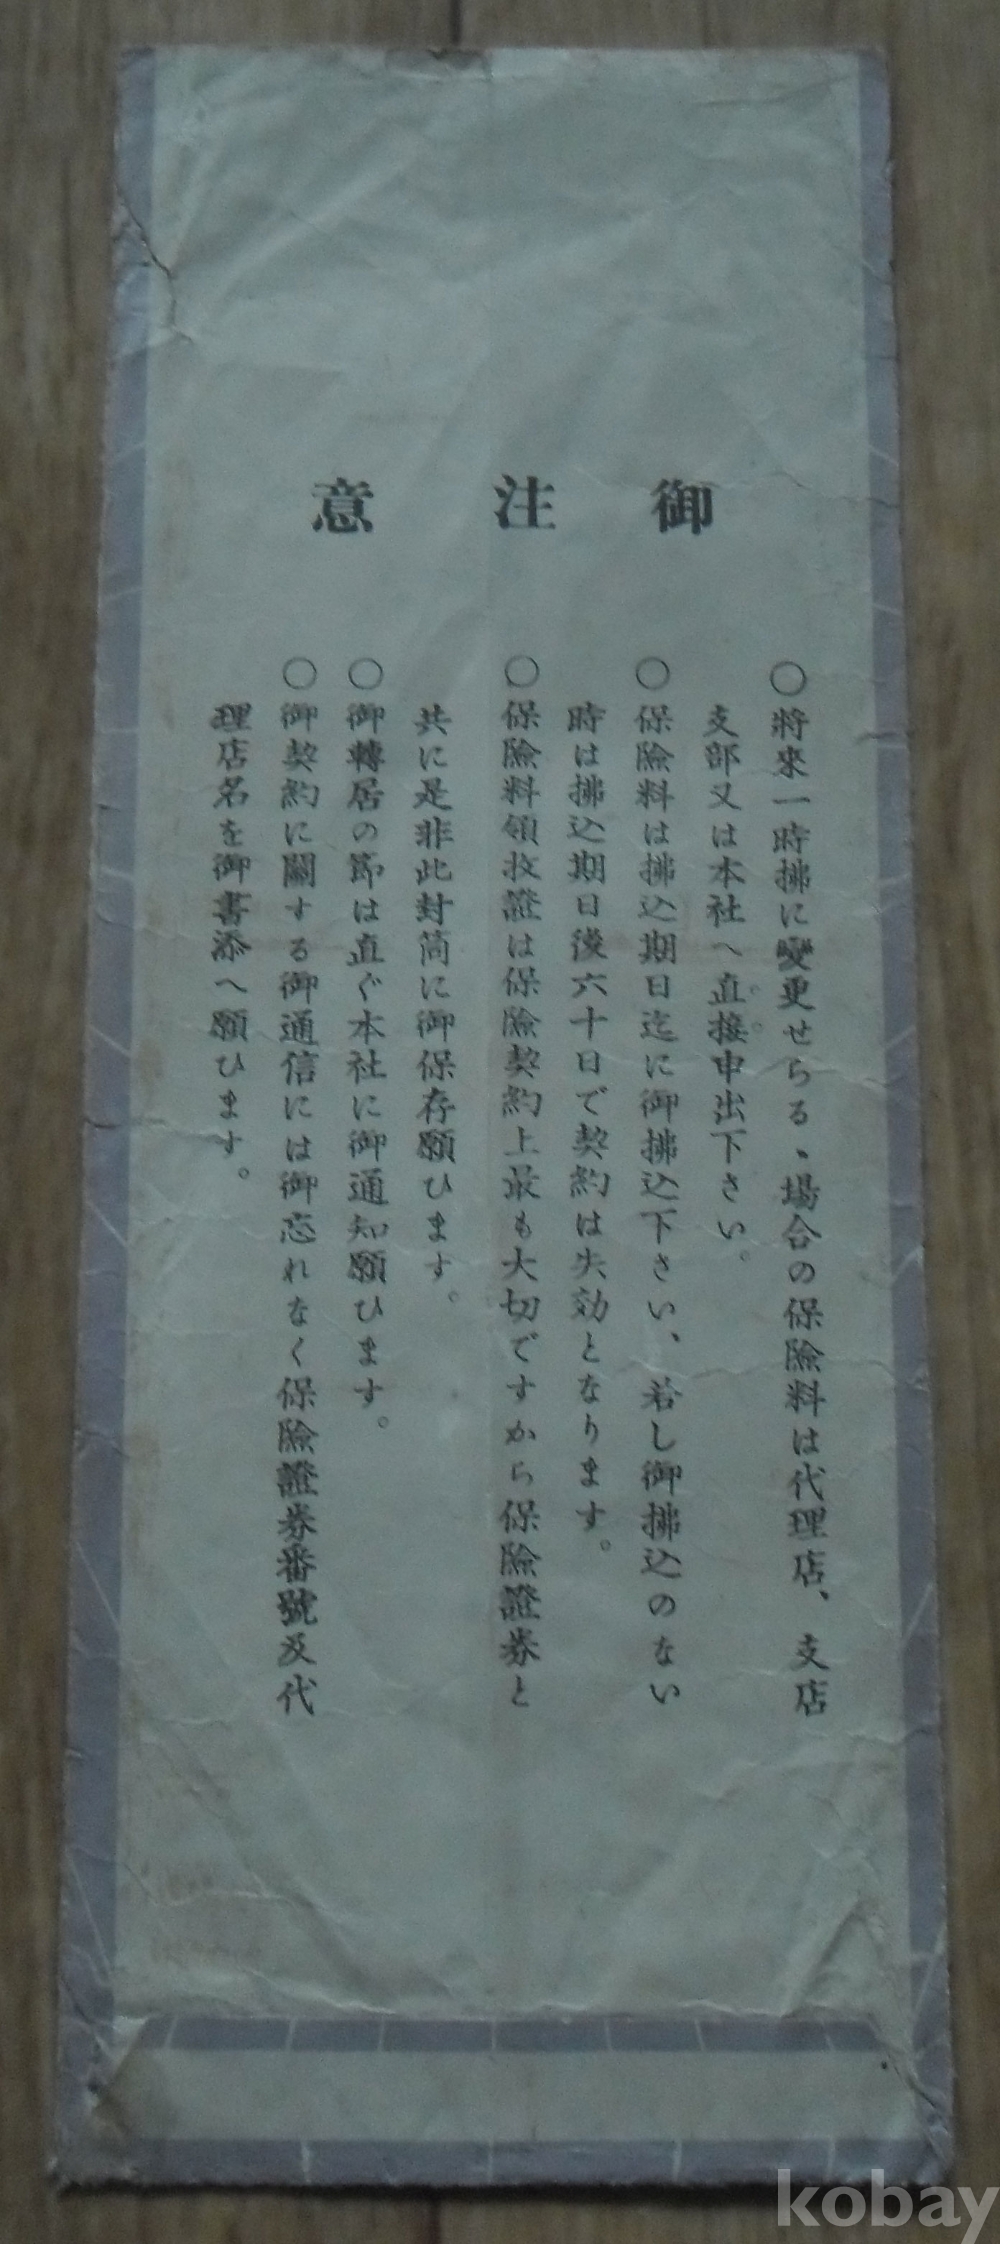 御注意
〇將來一時拂に變更せらるゝ場合の保險料は代理店、支店
支部又は本社へ直接申出下さい。
〇保險料は拂込期日迄に御拂込下さい、若し御拂込のない
時は拂込期日後六十日で契約は失効となります。
〇保險料領收證は保險契約上最も大切ですから保險證券と
共に是非此封筒に御保存願ひます。
〇御轉居の節は直ぐ本社に御通知願ひます。
〇御契約に關する御通信には御忘れなく保險證券番號及代
理店名を御書添へ願ひます。
kobay